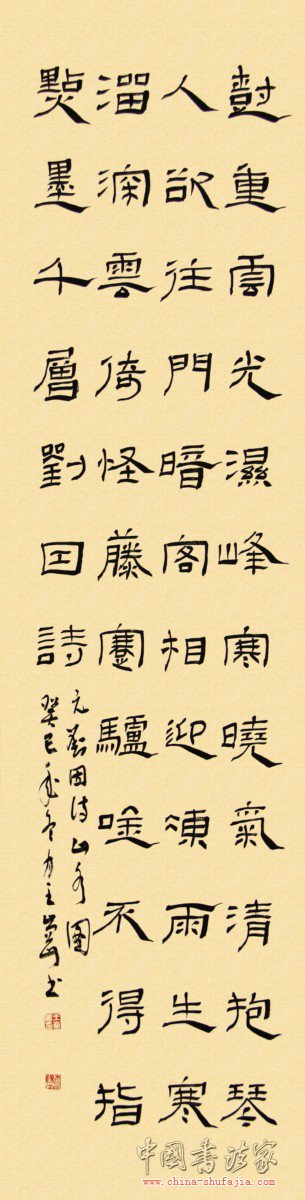 尌重雲光濕峰寒曉氣清抱琴
人欲往門暗閣相迎凍雨生寒
溜澗雲倚怪藤蹇驢吟不得指
點墨千層劉囙詩
元劉因詩山水圖
癸巳年冬月王書
中國書法家
www.china-shufajia.com